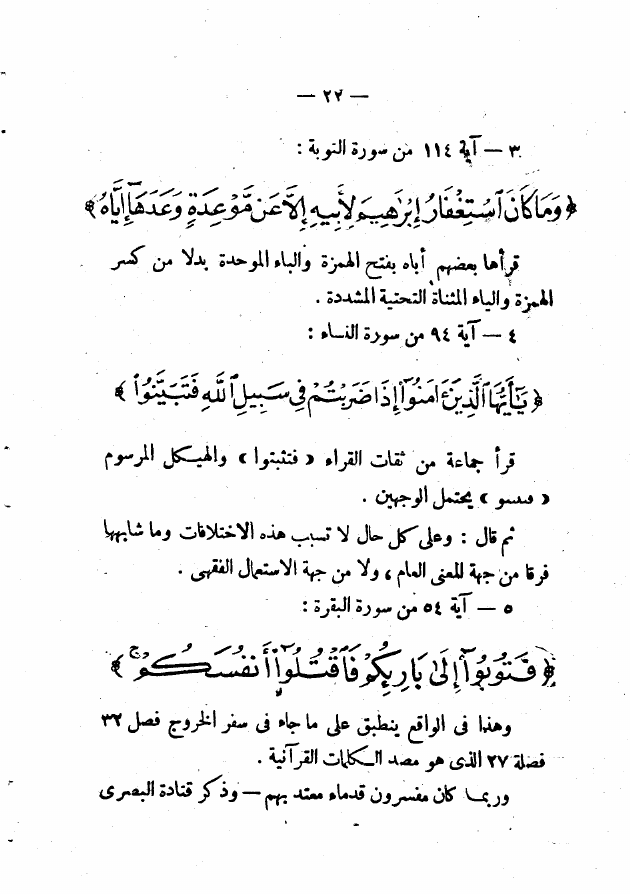 — ٢٢ —
٣ — آية ١١٤ من سورة التوبة :
﴿ وَمَا كَانَ ٱسْتِغْفَارُ إِبْرَٰهِيمَ لِأَبِيهِ إِلَّا عَن مَّوْعِدَةٍ وَعَدَهَا إِيَّاهُ ﴾
قرأها بعضهم أباه بفتح الهمزة والباء الموحدة بدلا من كسر
الهمزة والياء المثناة التحتية المشددة .
٤ — آية ٩٤ من سورة النساء :
﴿ يَٰٓأَيُّهَا ٱلَّذِينَ ءَامَنُوٓا۟ إِذَا ضَرَبْتُمْ فِى سَبِيلِ ٱللَّهِ فَتَبَيَّنُوا۟ ﴾
قرأ جماعة من ثقات القراء « فتثبتوا » والهيكل المرسوم
« فىىىىو » يحتمل الوجهين .
ثم قال : وعلى كل حال لا تسبب هذه الاختلافات وما شابهها
فرقا من جهة المعنى العام ، ولا من جهة الاستعمال الفقهى .
٥ — آية ٥٤ من سورة البقرة :
﴿ فَتُوبُوٓا۟ إِلَىٰ بَارِئِكُمْ فَٱقْتُلُوٓا۟ أَنفُسَكُمْ ﴾
وهذا فى الواقع ينطبق على ما جاء فى سفر الخروج فصل ٣٢
فصلة ٢٧ الذى هو مصد الكلمات القرآنية .
وربما كان مفسرون قدماء معتد بهم — وذكر قتادة البصرى